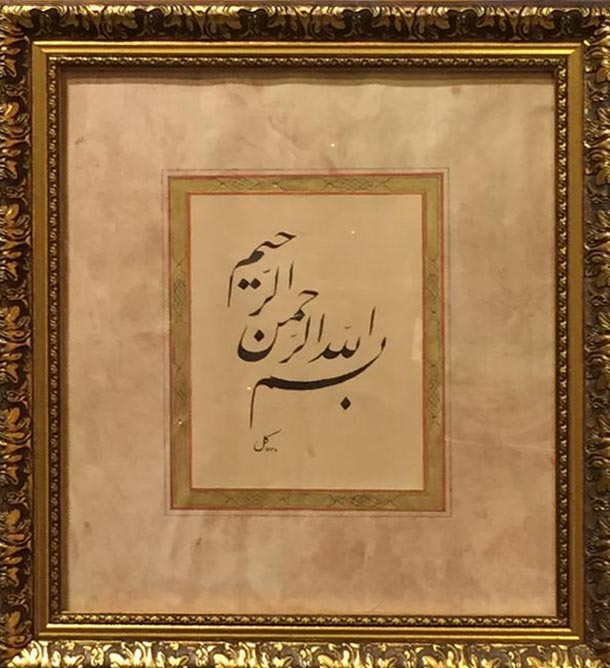 بسم
الله الرحمن
الرحيم